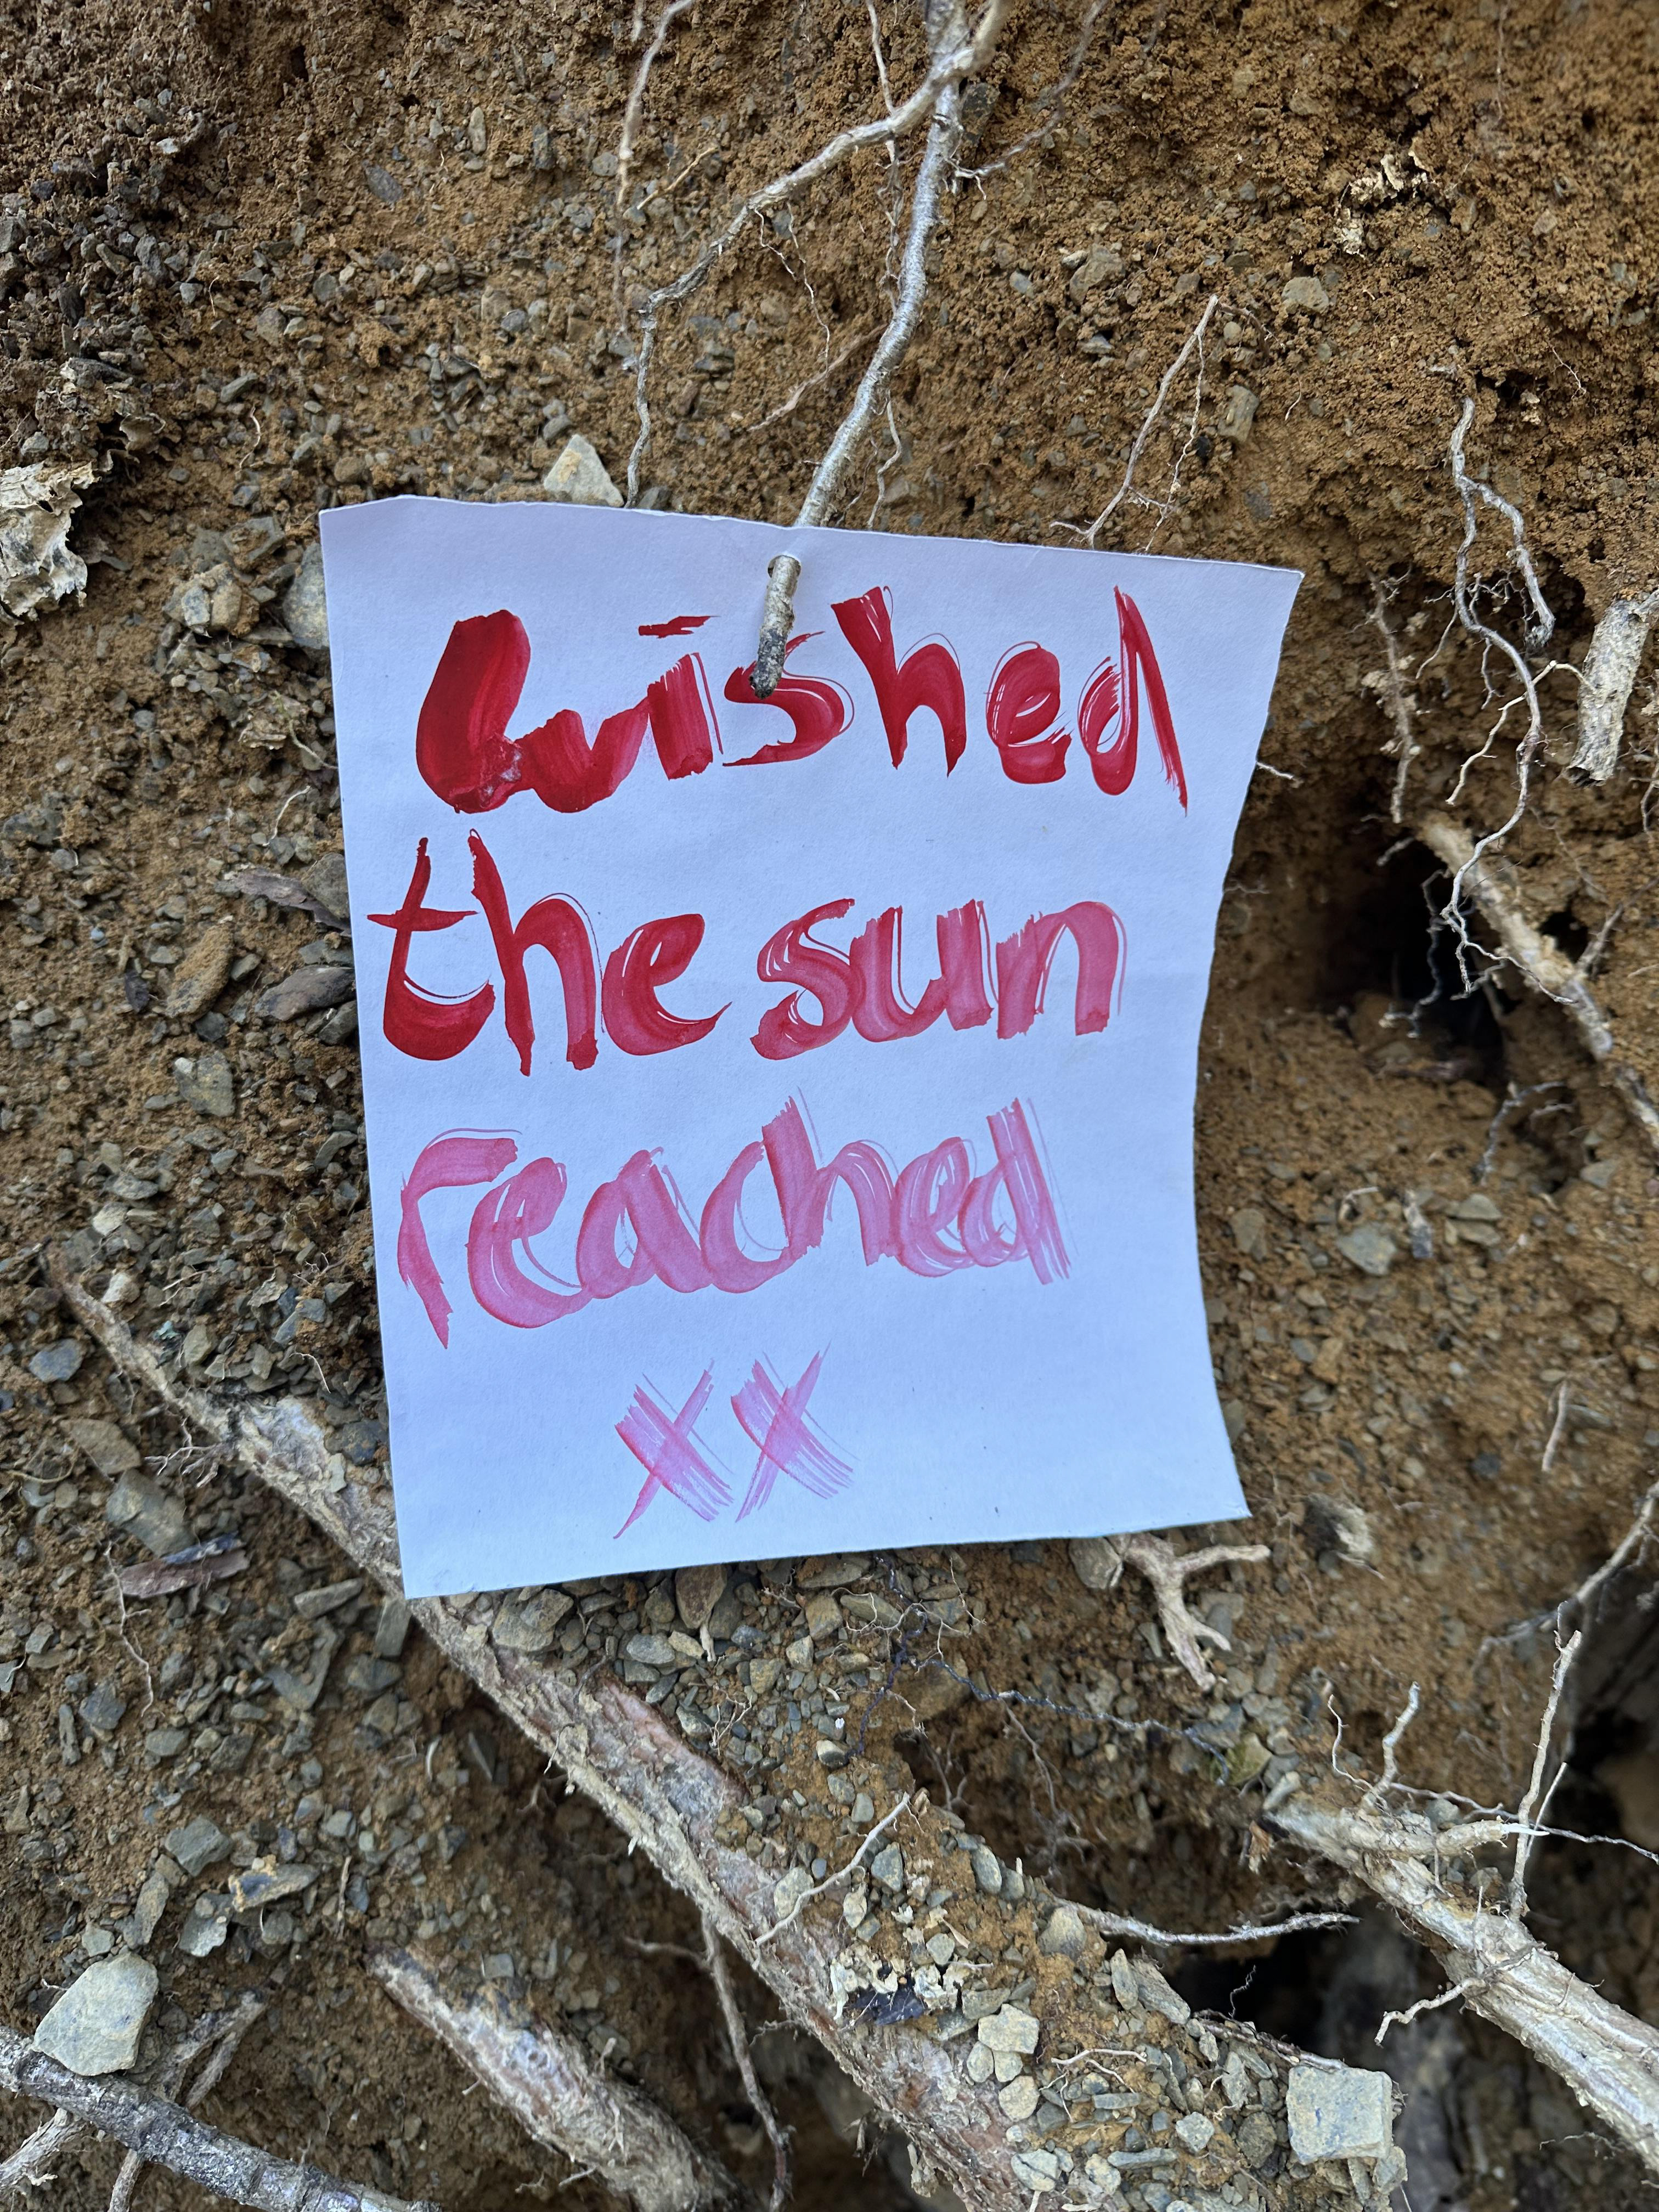 wished
the sun
reached
xx